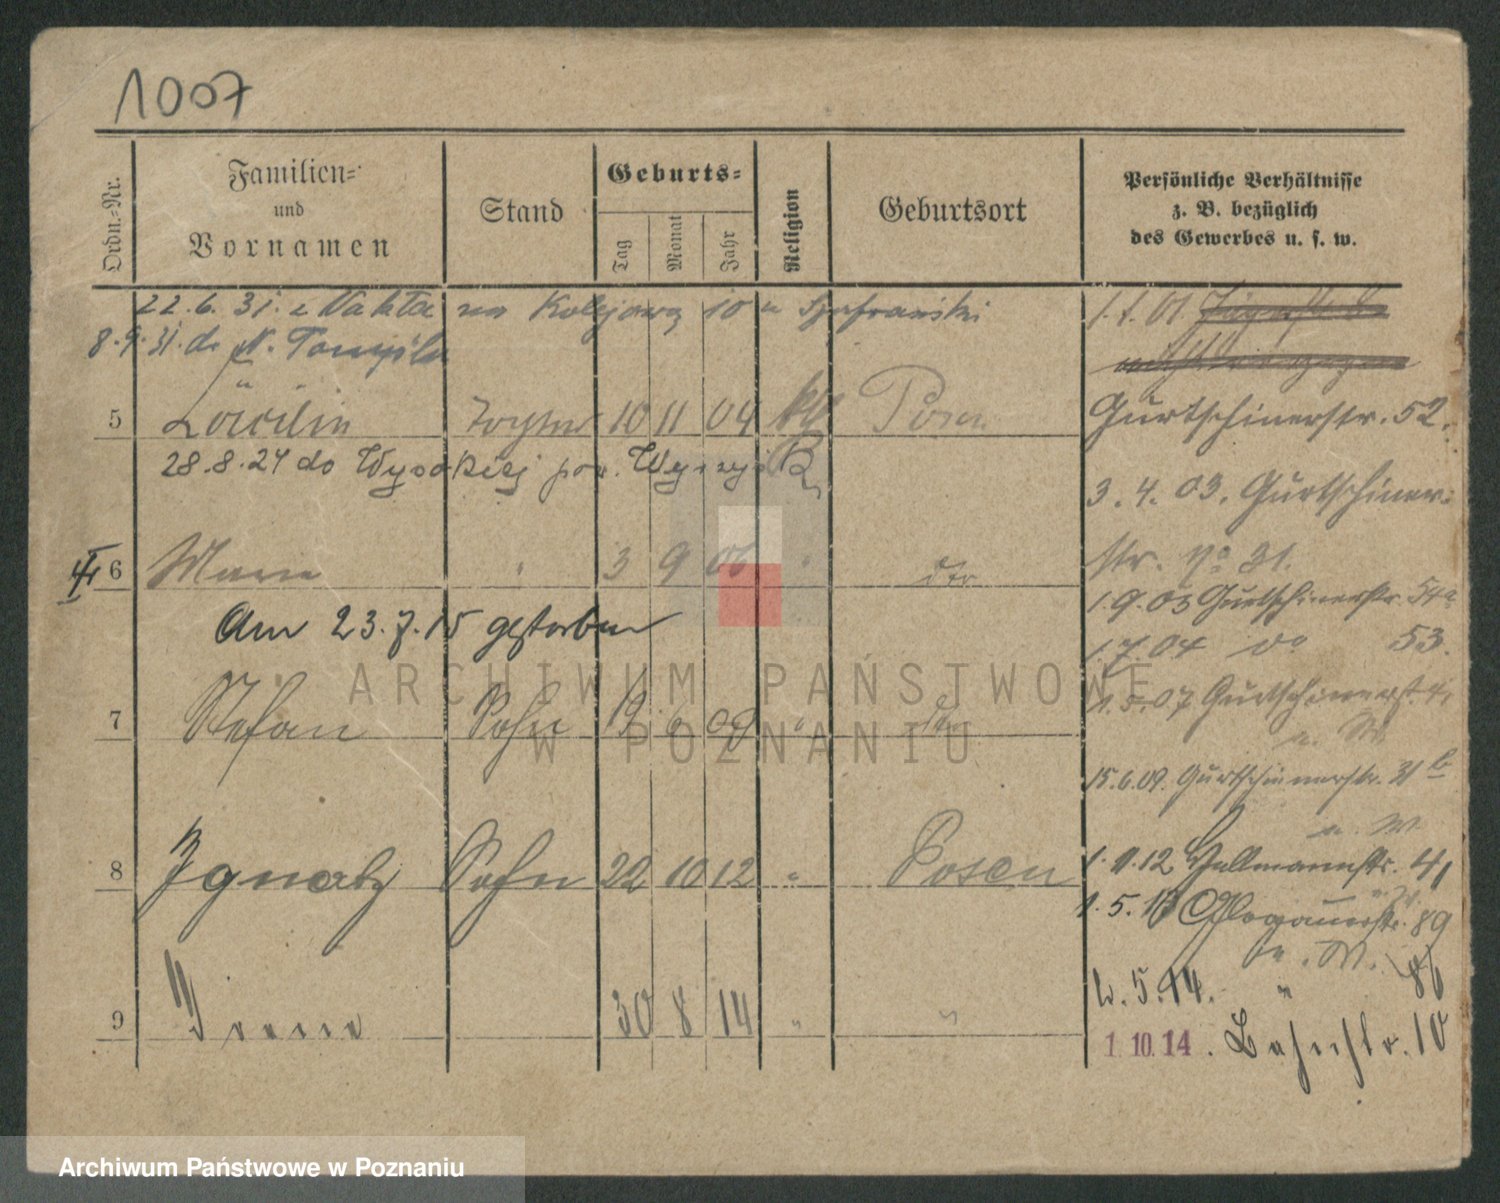 1007
Ordn.-Nr.
Familien-
und
Vornamen
Stand
Geburts-
Tag
Monat
Jahr
Religion
Geburtsort
Persönliche Verhältnisse
z. B. bezüglich
des Gewerbes u. s. w.
22.6.31. z Nakła na Kolejową 10 u Szafrański
8.9.31. do N. Tomyśla
1.1.01
5 10 11 04 kth Posen
Gurtschinerstr. 52.
28.8.24 do Wysokiej pow. Wyrzysk
3.4.03. Gurtschiner-
str. No 31.
6 Marie " 3 9 06 " do
1.9.03 Gurtschinerstr. 54a
Am 23.7.15 gestorben
1.7.04 do 53.
7 Stefan Sohn 19 6 09 " do
1.5.07 Gurtschinerstr.
u. W.
15.6.09. Gurtschinerstr. 31b
u. W.
8 Ignatz Sohn 22 10 12 " Posen
1.11.12 41
1.5.13 Glogauerstr. 89
u. W. 86
9 Irene 30 8 14 " "
5.14. "
1.10.14. Bahnstr. 10
ARCHIWUM PAŃSTWOWE
W POZNANIU
Archiwum Państwowe w Poznaniu